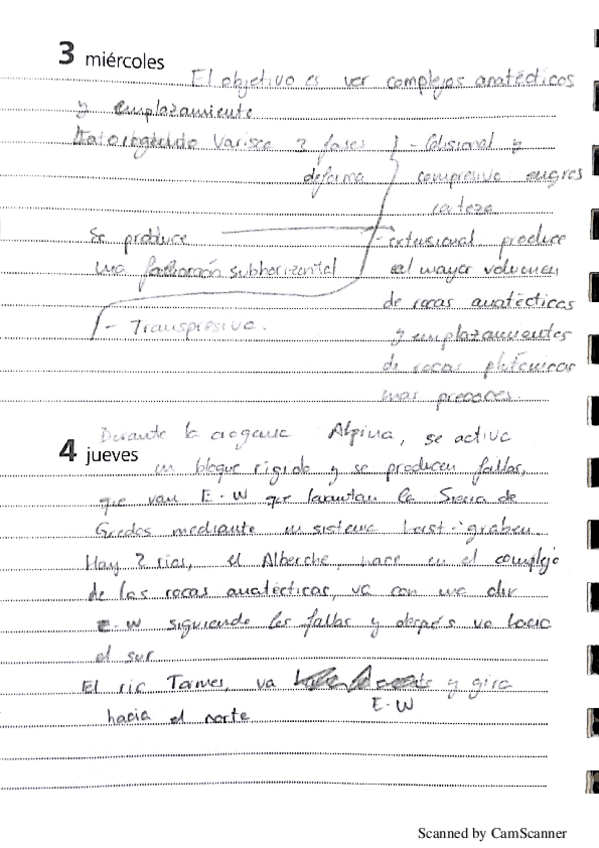 3 miércoles
El objetivo es ver complejos anatécticos
y emplazamiento
Varisco 2 fases } - Colisional y
deforma compresiva engros
corteza
Se produce - extensional produce
una foliación subhorizontal el mayor volumen
de rocas anatécticas
- Transpresiva. y emplazamientos
de rocas plutónicas
mas precoces.
4 jueves
Durante la orogenia Alpina, se activa
un bloque rígido y se producen fallas,
que van E-W que levantan la Sierra de
Gredos mediante un sistema horst-graben.
Hay 2 ríos, el Alberche, nace en el complejo
de las rocas anatécticas, va con una dir
E-W siguiendo las fallas y después va hacia
el sur
El río Tormes, va y gira
E-W
hacia el norte
Scanned by CamScanner